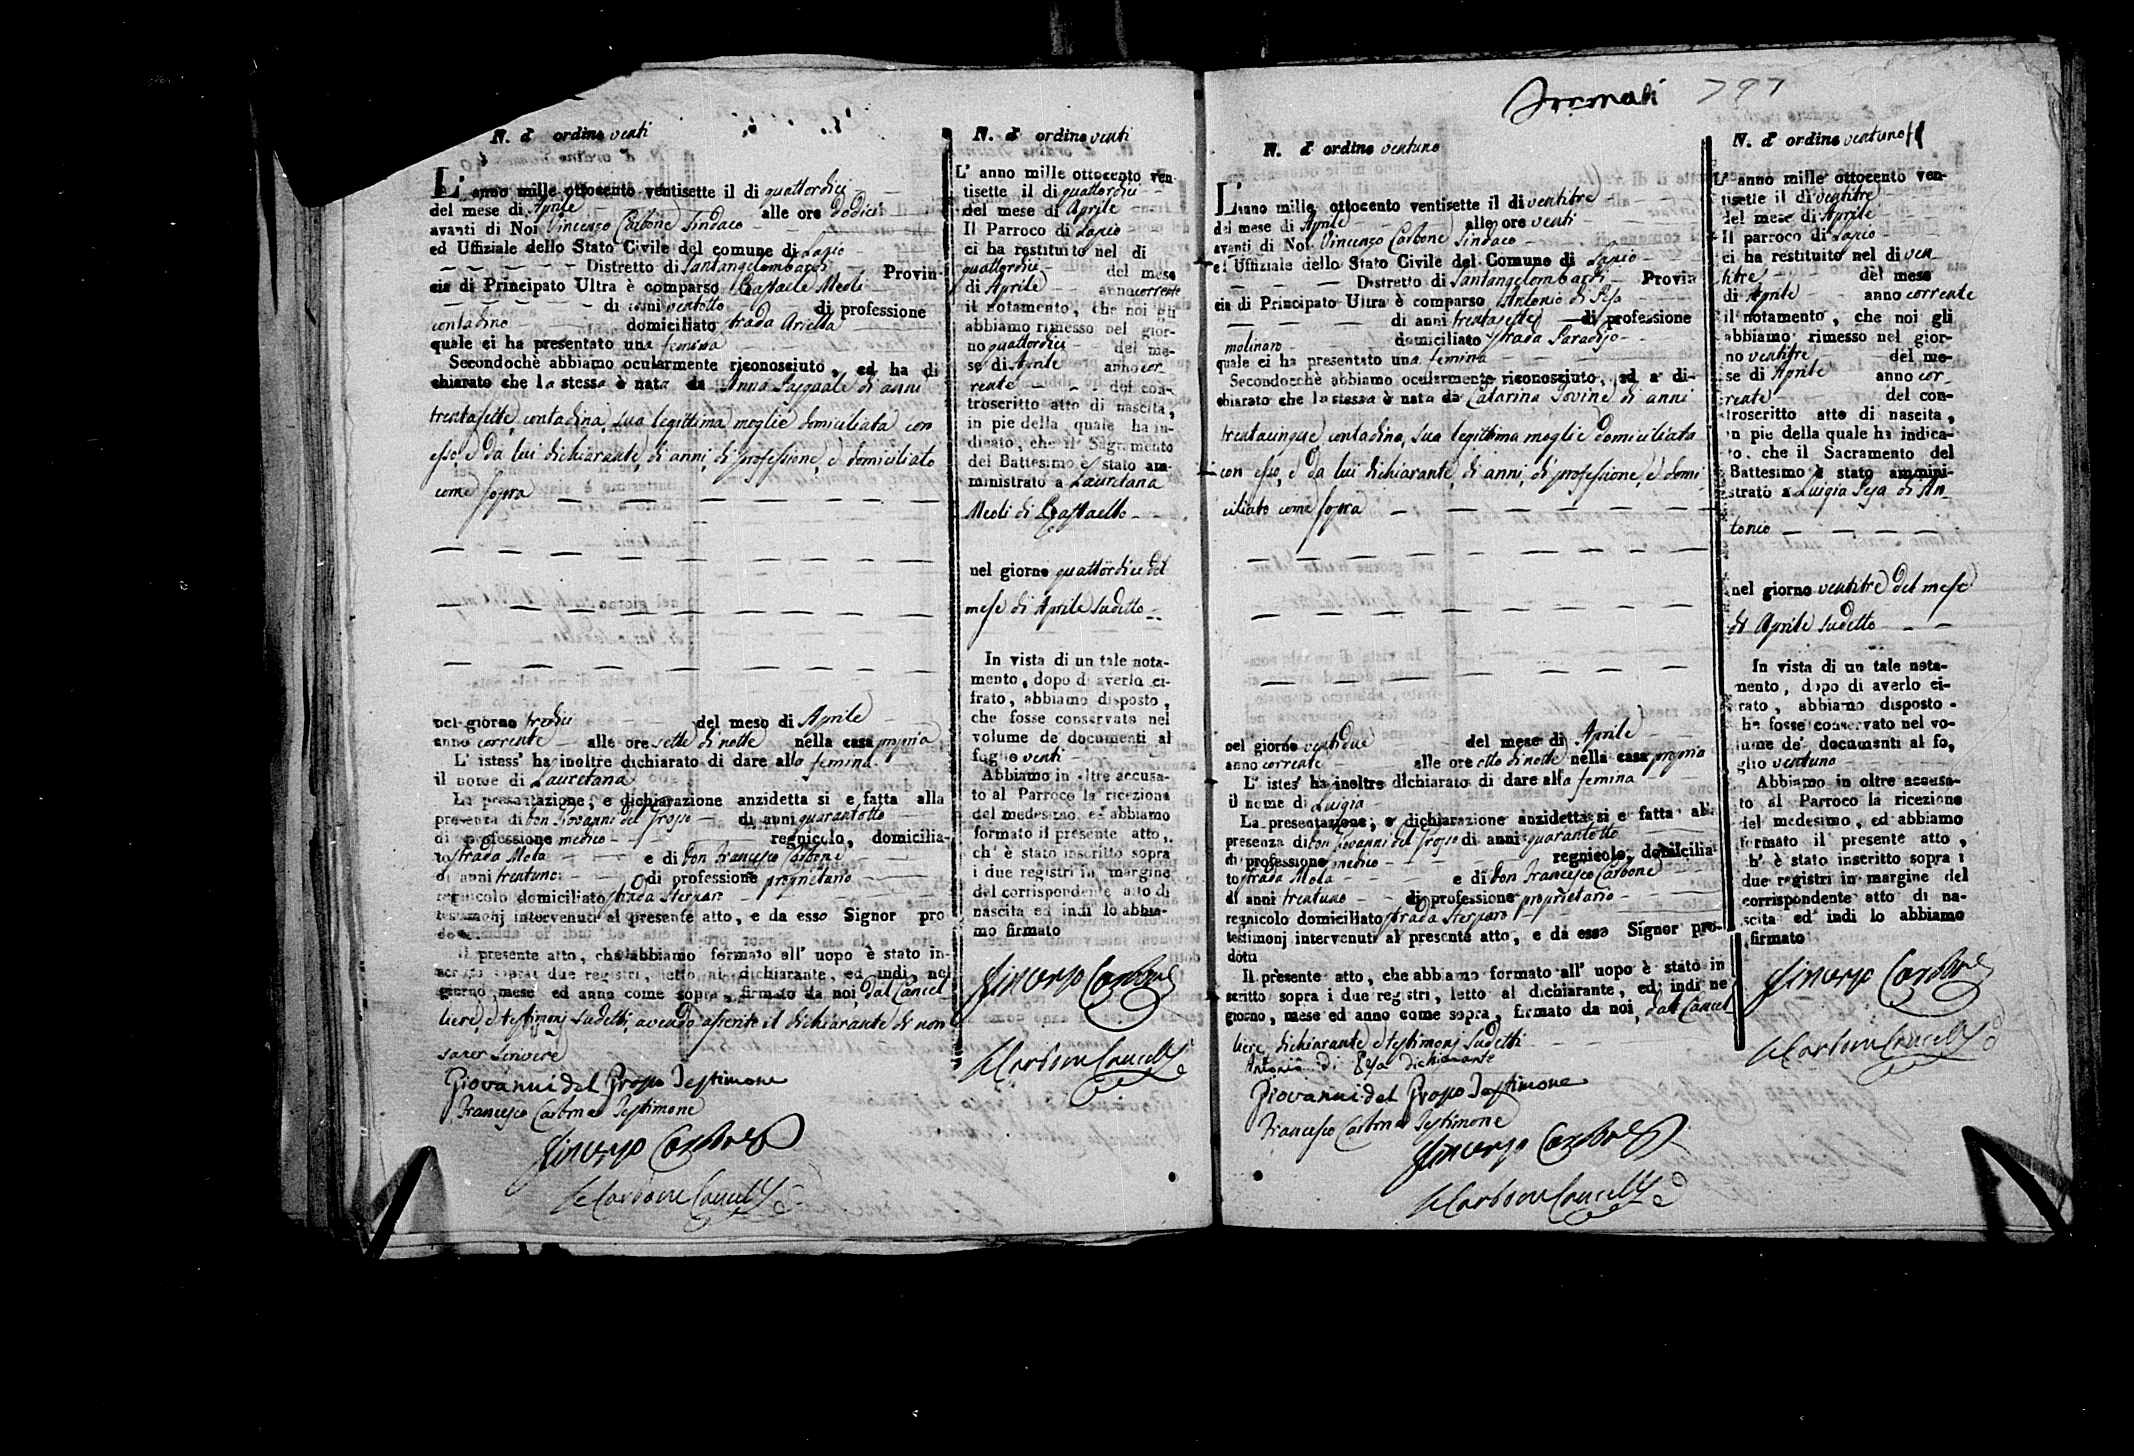 N. d' ordine venti
L' anno mille ottocento ventisette il di quattordici
del mese di Aprile alle ore dodici
avanti di Noi Vincenzo Carbone Sindaco
ed Uffiziale dello Stato Civile del comune di Lapio
Distretto di Santangelombardi Provin-
cia di Principato Ultra è comparso Raffaele Meoli
di anni ventotto di professione
contadino domiciliato strada Ariella
quale ci ha presentato una femina
Secondochè abbiamo ocularmente riconosciuto, ed ha di
chiarato che la stessa è nata da Anna Pasquale di anni
trentasette, contadina, sua legittima moglie domiciliata con
esso, e da lui dichiarante, di anni, di professione, e domiciliato
come sopra
nel giorno tredici del mese di Aprile
anno corrente alle ore sette di notte nella casa propria
L' istess' ha inoltre dichiarato di dare alla femina
il nome di Lauretana
La presentazione, e dichiarazione anzidetta si e fatta alla
presenza di Don Giovanni del Grosso di anni quarantotto
di professione medico regnicolo, domicilia-
to strada Mola e di Don Francesco Carbone
di anni trentuno di professione proprietario
regnicolo domiciliato strada Sterparo
testimonj intervenuti al presente atto, e da esso Signor pro
Il presente atto, che abbiamo formato all' uopo è stato in-
scritto sopra i due registri, letto al dichiarante, ed indi nel
giorno, mese ed anno come sopra, firmato da noi, dal Cancel-
liere, e testimonj sudetti, avendo asserito il dichiarante di non
saper scrivere
Giovanni del Grosso Testimone
Francesco Carbone Testimone
Vincenzo Carbone
Carbone Cancell.
N. d' ordine venti
L' anno mille ottocento ven-
tisette il di quattordici
del mese di Aprile
Il Parroco di Lapio
ci ha restituito nel di
quattordici del mese
di Aprile anno corrente
il notamento, che noi gli
abbiamo rimesso nel gior-
no quattordici del me-
se di Aprile anno cor-
rente del con-
troscritto atto di nascita,
in pie della quale ha in-
dicato, che il Sagramento
del Battesimo è stato am-
ministrato a Lauretana
Meoli di Raffaello
nel giorno quattordici del
mese di Aprile sudetto
In vista di un tale nota-
mento, dopo di averlo ci-
frato, abbiamo disposto,
che fosse conservato nel
volume de' documenti al
foglio venti
Abbiamo in oltre accusa-
to al Parroco la ricezione
del medesimo, ed abbiamo
formato il presente atto,
ch' è stato inscritto sopra
i due registri in margine
del corrispondente atto di
nascita ed indi lo abbia-
mo firmato
Vincenzo Carbone
Carbone Cancell.
797
N. d' ordine ventuno
L' anno mille ottocento ventisette il di ventitre
del mese di Aprile alle ore venti
avanti di Noi Vincenzo Carbone Sindaco
ed Uffiziale dello Stato Civile del Comune di Lapio
Distretto di Santangelombardi Provin
cia di Principato Ultra è comparso Antonio di Pesa
di anni trentasette di professione
molinaro domiciliato strada Paradiso
quale ci ha presentato una femina
Secondocchè abbiamo ocularmente riconosciuto, ed a di-
chiarato che la stessa è nata da Catarina Iovine di anni
trentacinque, contadina, sua legittima moglie domiciliata
con esso, e da lui dichiarante, di anni, di professione, e domi
ciliato come sopra
nel giorno ventidue del mese di Aprile
anno corrente alle ore otto di notte nella casa propria
L' istes' ha inoltre dichiarato di dare alla femina
il nome di Luigia
La presentazione, e dichiarazione anzidetta si e fatta alla
presenza di Don Giovanni del Grosso di anni quarantotto
di professione medico regnicolo, domicilia
to strada Mola e di Don Francesco Carbone
di anni trentuno di professione proprietario
regnicolo domiciliato strada Sterparo
testimonj intervenuti al presente atto, e da esso Signor pro-
dotti
Il presente atto, che abbiamo formato all' uopo è stato in
scritto sopra i due registri, letto al dichiarante, ed indi ne
giorno, mese ed anno come sopra, firmato da noi, dal Cancel
liere, dichiarante, e testimonj sudetti
Antonio di Pesa dichiarante
Giovanni del Grosso Testimone
Francesco Carbone Testimone
Vincenzo Carbone
Carbone Cancell.
N. d' ordine ventuno
L' anno mille ottocento ven-
tisette il di ventitre
del mese di Aprile
Il parroco di Lapio
ci ha restituito nel di ven-
titre del mese
di Aprile anno corrente
il notamento, che noi gli
abbiamo rimesso nel gior-
no ventitre del me-
se di Aprile anno cor-
rente del con-
troscritto atto di nascita,
in pie della quale ha indica-
to, che il Sacramento del
Battesimo è stato ammini-
strato a Luigia Pesa di An-
tonio
nel giorno ventitre del mese
di Aprile sudetto
In vista di un tale nota-
mento, dopo di averlo ci-
frato, abbiamo disposto
che fosse conservato nel vo-
lume de' documenti al fo,
glio ventuno
Abbiamo in oltre accusa-
to al Parroco la ricezione
del medesimo, ed abbiamo
formato il presente atto,
ch' è stato inscritto sopra i
due registri in margine del
corrispondente atto di na-
scita ed indi lo abbiamo
firmato
Vincenzo Carbone
Carbone Cancell.